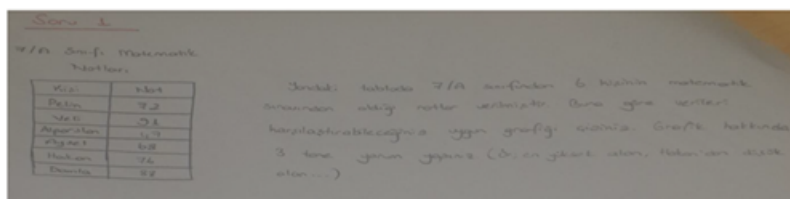 Soru 1
7/A Sınıfı Matematik
Notları
Kişi Not
Pelin 72
Veli 91
Alparslan 47
68
Hakan 76
Yandaki tabloda 7/A sınıfından 6 kişinin matematik
sınavından aldığı notlar verilmiştir. Buna göre verileri
karşılaştırabileceğiniz uygun grafiği çiziniz. Grafik hakkında
3 tane yorum yapınız (Ör, en yüksek alan, Hakan'dan düşük
alan....)